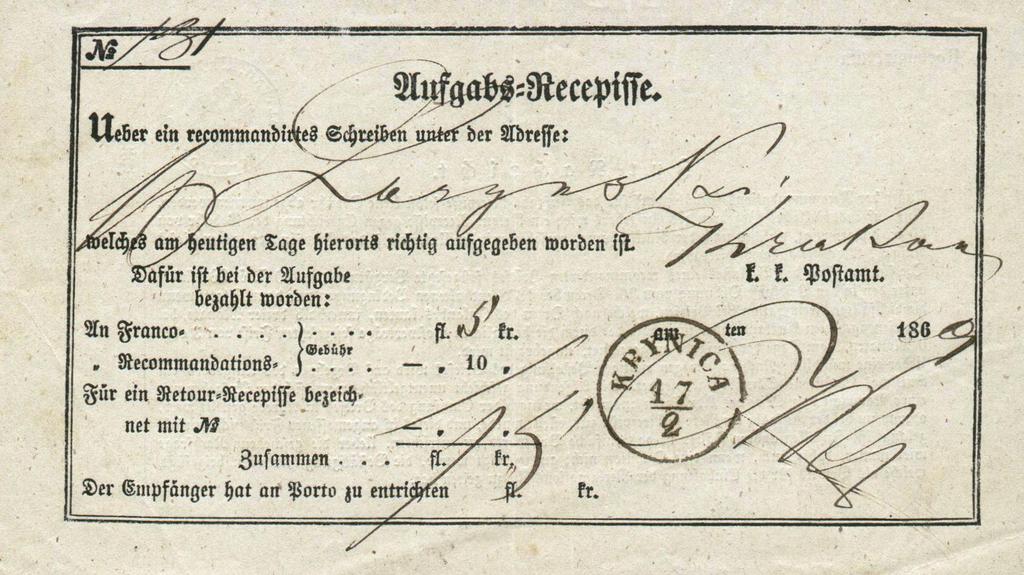 № 131
Aufgabs-Recepisse.
Ueber ein recommandirtes Schreiben unter der Adresse:
welches am heutigen Tage hierorts richtig aufgegeben worden ist. Krakau
Dafür ist bei der Aufgabe k. k. Postamt.
bezahlt worden:
An Franco- . . . . } . . . . fl. 5 kr. am ten 1869
Gebühr
„ Recommandations- } . . . . — „ 10 „
KRYNICA
17
2
Für ein Retour-Recepisse bezeich-
net mit № — „ „
Zusammen . . . fl. 15 kr.
Der Empfänger hat an Porto zu entrichten fl. kr.